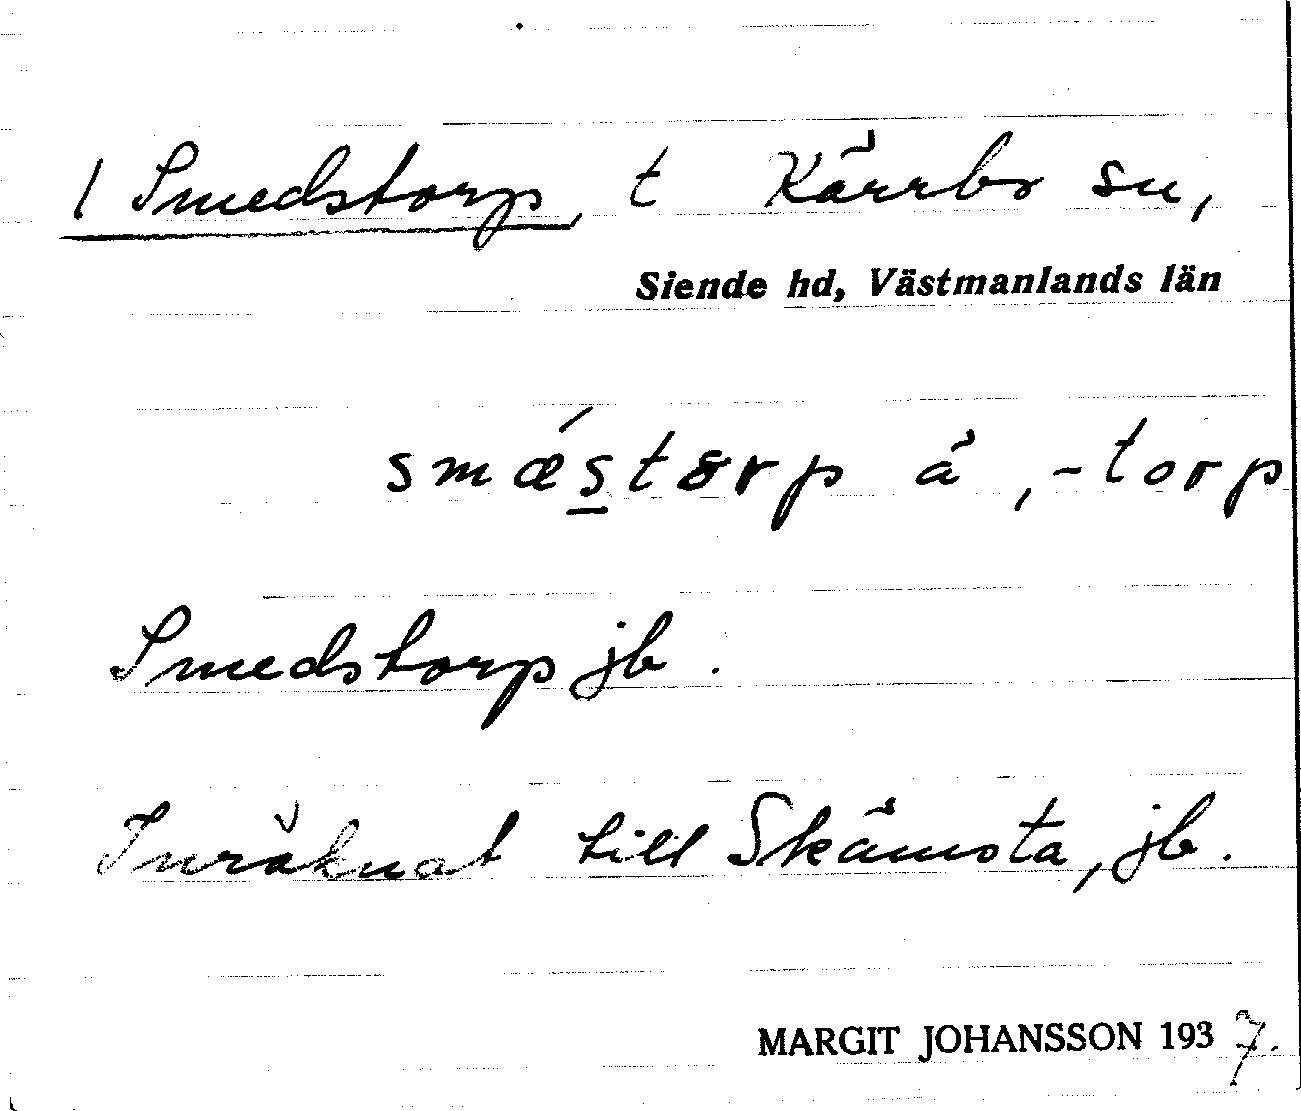 1 Smedstorp, t Kärrbo sn,
Siende hd, Västmanlands län
smǽs̲tɵrp å , -torp
Smedstorp jb.
Inräknat till Skämsta, jb.
MARGIT JOHANSSON 1937.